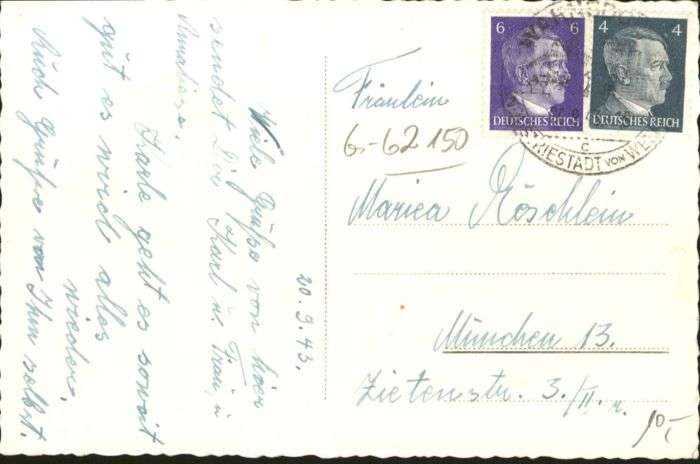 20.9.43.
Viele Grüße von hier
sendet Dir Karl u. Frau, u.
Karle geht es soweit
gut es wird alles
wieder.
Auch Grüße von Ihm selbst.
6 6
DEUTSCHES REICH
4 4
DEUTSCHES REICH
WARNSDORF
C
Fräulein
6-62150
Marica Röschlein
München 13.
Zietenstr. 3/II. r.
10,-